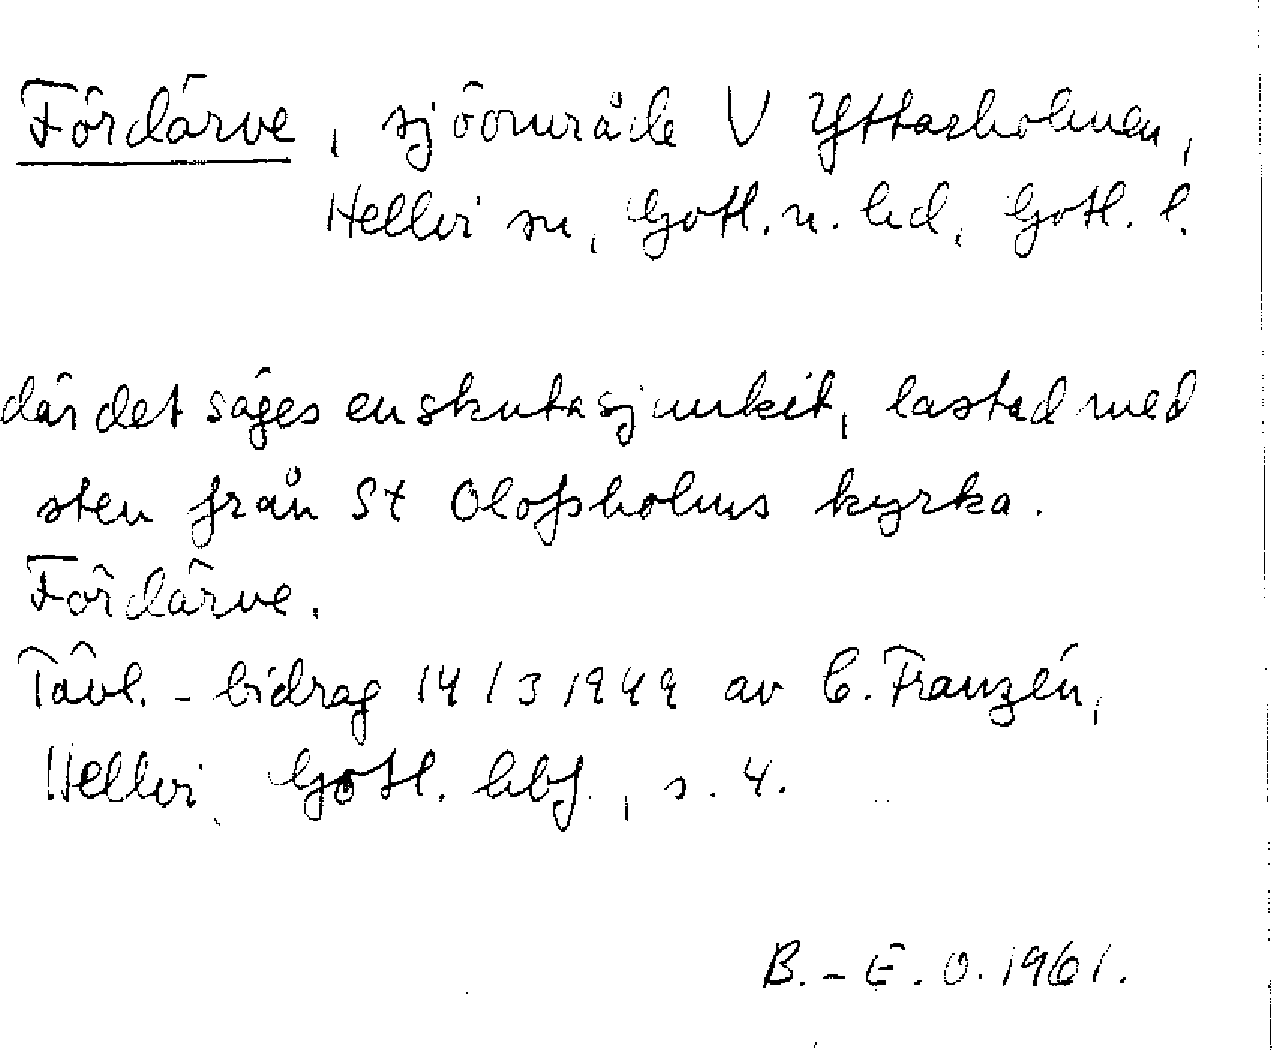 Fördärve, sjöområde V Yttarholmen,
Hellvi sn, Gotl. n. hd, Gotl. l.
där det säges en skuta sjunkit, lastad med
sten från St Olofsholms kyrka.
Fördärve.
Tävl.-bidrag 14/3 1949 av C. Franzén,
Hellvi, Gotl. hbf., s. 4.
B.-E. O. 1961.